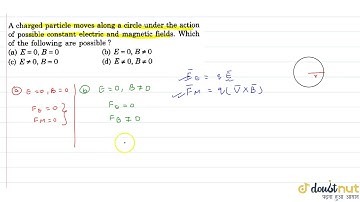 A charged particle moves along a circle under the action
of possible constant electric and magnetic fields. Which
of the following are possible ?
(a) E = 0, B = 0 (b) E = 0, B ≠ 0
(c) E ≠ 0, B = 0 (d) E ≠ 0, B ≠ 0
(a) E=0, B=0
F_E=0
F_M=0
(b) E=0, B≠0
F_E=0
F_B≠0
F_E = q E
F_M = q(V×B)
r
doubtnut
पढ़ना हुआ आसान